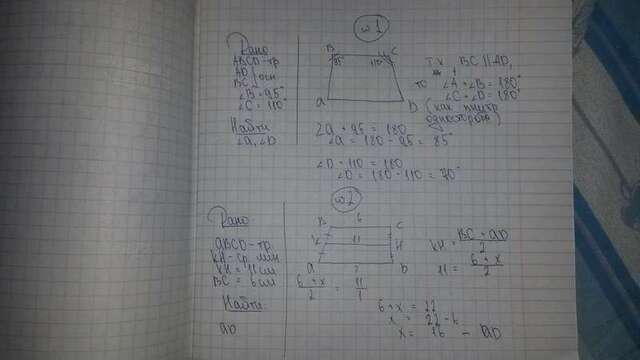 w1
Дано
ABCD - тр.
AD
BC
осн
∠B = 95°
∠C = 110°
Найти
∠A, ∠D
B
C
95°
110°
A
D
т.к BC || AD,
то ∠A + ∠B = 180°
∠C + ∠D = 180°
(как внутр
односторон)
∠A + 95 = 180
∠A = 180 - 95 = 85°
∠D + 110 = 180
∠D = 180 - 110 = 70°
w2
Дано
ABCD - тр.
KH - ср. лин
KH = 11 см
BC = 6 см
Найти
AD
B 6 C
K 11 H
A ? D
KH = BC + AD / 2
11 = 6 + x / 2
6 + x / 2 = 11 / 1
6 + x = 22
x = 22 - 6
x = 16 - AD